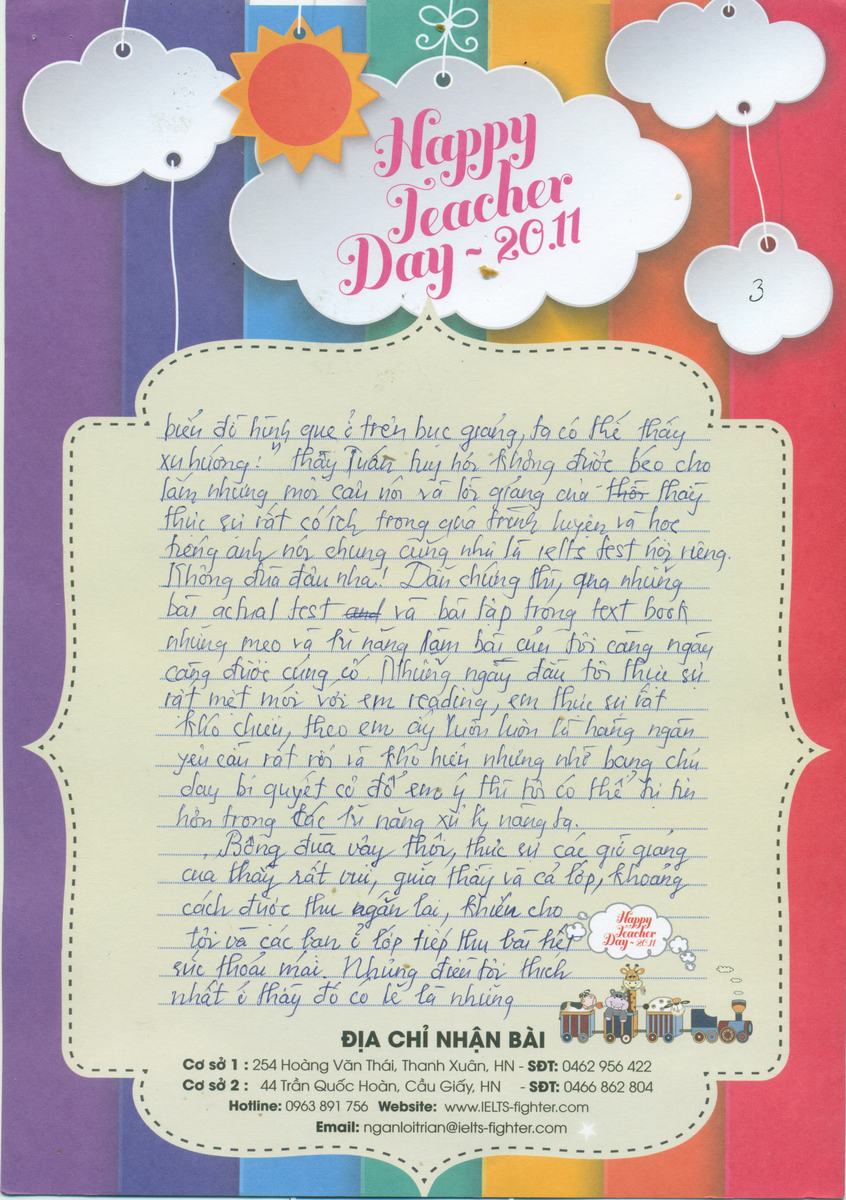 Happy
Teacher
Day ~ 20.11
3
biểu đồ hình que ở trên bục giảng, ta có thể thấy
xu hướng: " thầy Tuấn tuy hơi không được béo cho
lắm nhưng mỗi câu nói và lời giảng của thôi thầy
thực sự rất có ích trong quá trình luyện và học
tiếng anh nói chung cũng như là ielts test nói riêng.
Không đùa đâu nha! Dẫn chứng thì, qua những
bài actual test and và bài tập trong text book
những mẹo và kĩ năng làm bài của tôi càng ngày
càng được củng cố. Những ngày đầu tôi thực sự
rất mệt mỏi với em reading, em thực sự rất
khó chiều, theo em ấy luôn luôn là hàng ngàn
yêu cầu rất rối và khó hiểu nhưng nhờ bang chủ
dạy bí quyết cố đổ em ý thì tôi có thể tự tin
hơn trong các kĩ năng xử lý nàng ta.
Bông đùa vậy thôi, thực sự các giờ giảng
của thầy rất vui, giữa thầy và cả lớp, khoảng
cách được thu ngắn lại, khiến cho
tôi và các bạn ở lớp tiếp thu bài hết
sức thoải mái. Những điều tôi thích
nhất ở thầy đó có lẽ là những
Happy
Teacher
Day ~ 20.11
ĐỊA CHỈ NHẬN BÀI
Cơ sở 1 : 254 Hoàng Văn Thái, Thanh Xuân, HN - SĐT: 0462 956 422
Cơ sở 2 : 44 Trần Quốc Hoàn, Cầu Giấy, HN - SĐT: 0466 862 804
Hotline: 0963 891 756 Website: www.IELTS-fighter.com
Email: nganloitrian@ielts-fighter.com